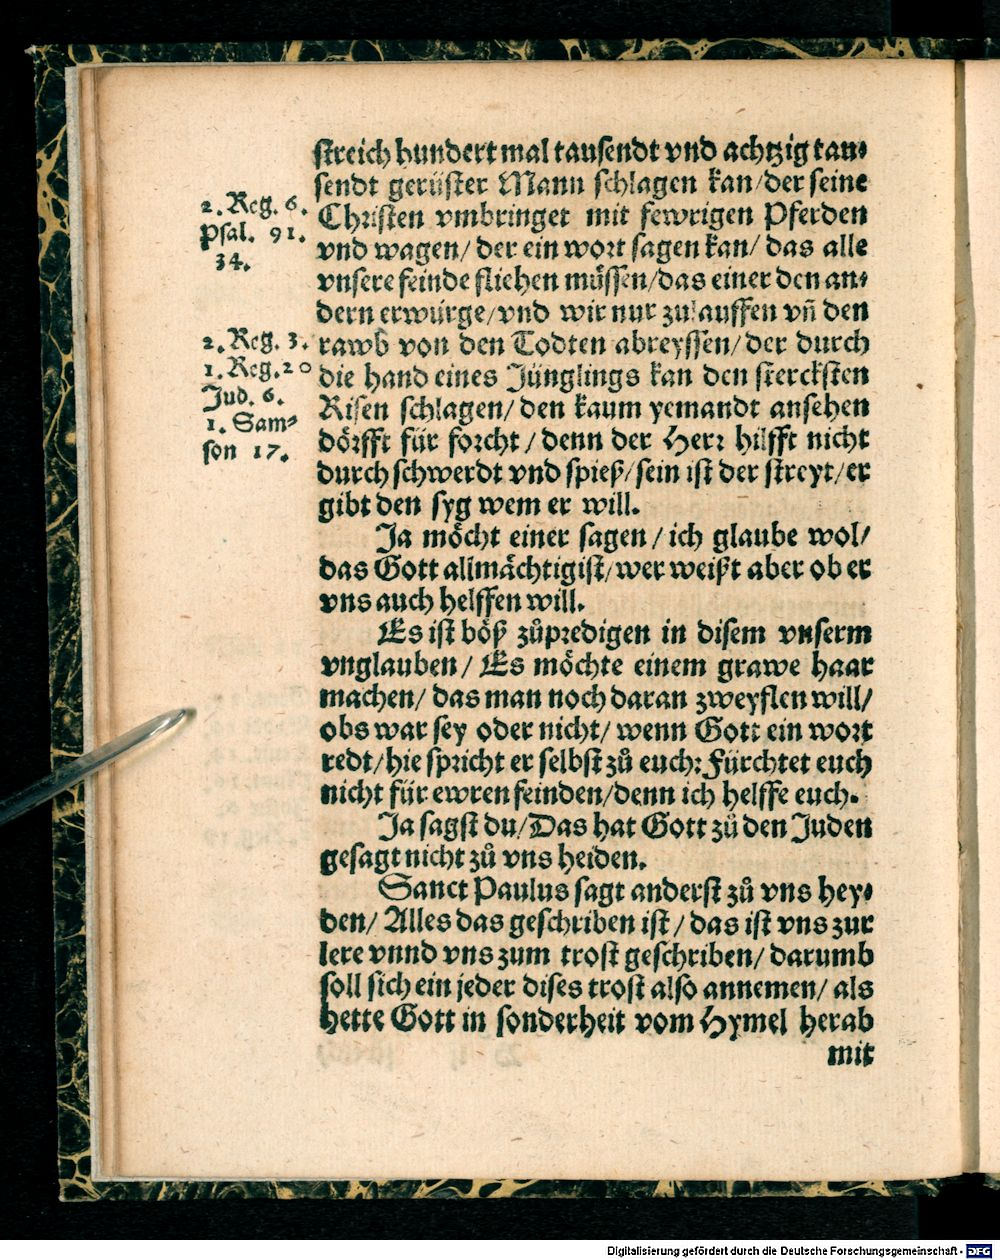 streich hundert mal tausendt vnd achtzig tau⸗
sendt gerüster Mann schlagen kan/ der seine
Christen vmbringet mit fewrigen Pferden
vnd wagen/ der ein wort sagen kan/ das alle
vnsere feinde fliehen müssen/ das einer den an⸗
dern erwürge/ vnd wir nur zulauffen vñ den
rawb von den Todten abreyssen/ der durch
die hand eines Jünglings kan den stercksten
Risen schlagen/ den kaum yemandt ansehen
dörfft für forcht/ denn der Herr hilfft nicht
durch schwerdt vnd spieß/ sein ist der streyt/ er
gibt den syg wem er will.
2. Reg. 6.
Psal. 91.
34.
2. Reg. 3.
1. Reg. 20
Jud. 6.
1. Sam⸗
son 17.
Ja möcht einer sagen/ ich glaube wol/
das Gott allmächtig ist/ wer weißt aber ob er
vns auch helffen will.
Es ist böß zůpredigen in disem vnserm
vnglauben/ Es möchte einem grawe haar
machen/ das man noch daran zweyflen will/
obs war sey oder nicht/ wenn Gott ein wort
redt/ hie spricht er selbst zů euch: Fürchtet euch
nicht für ewren feinden/ denn ich helffe euch.
Ja sagst du/ Das hat Gott zů den Juden
gesagt nicht zů vns heiden.
Sanct Paulus sagt anderst zů vns hey⸗
den/ Alles das geschriben ist/ das ist vns zur
lere vnnd vns zum trost geschriben/ darumb
soll sich ein jeder dises trost also annemen/ als
hette Gott in sonderheit vom Hymel herab
mit
Digitalisierung gefördert durch die Deutsche Forschungsgemeinschaft - DFG